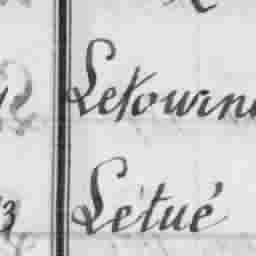 Letourn
3 Létué